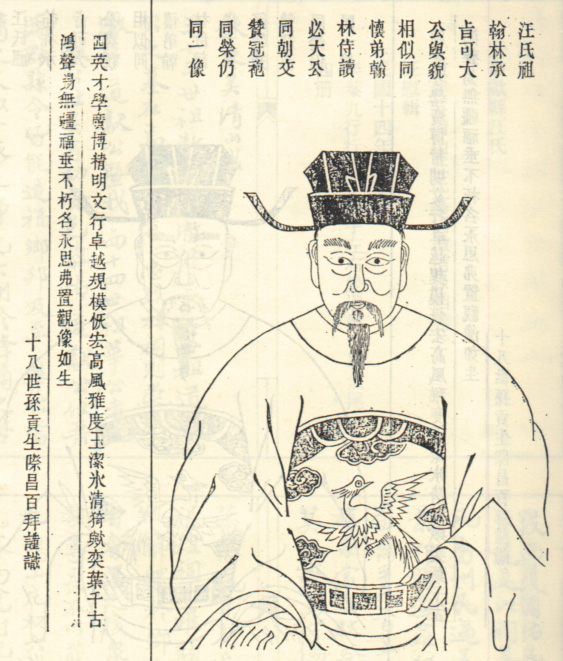 汪氏祖
翰林承
旨可大
公與貌
相似同
懷弟翰
林侍讀
必大公
同朝文
贊冠袍
同榮仍
同一像
英才學廣博精明文行卓越規模恢宏高風雅度玉潔氷清猗歟奕葉千古
鴻聲無疆福垂不朽名永思弗置觀像如生
十八世孫貢生際昌百拜謹識